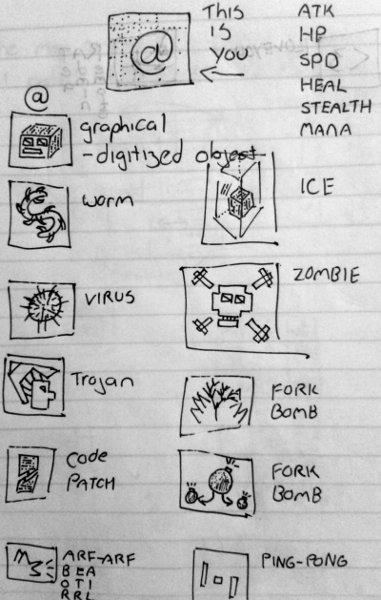 @
THIS
IS
YOU
ATK
HP
SPD
HEAL
STEALTH
MANA
@
graphical
-digitized object
worm
ICE
VIRUS
ZOMBIE
Trojan
FORK
BOMB
Code
PATCH
FORK
BOMB
ARF-ARF
BEA
OTI
RRL
PING-PONG